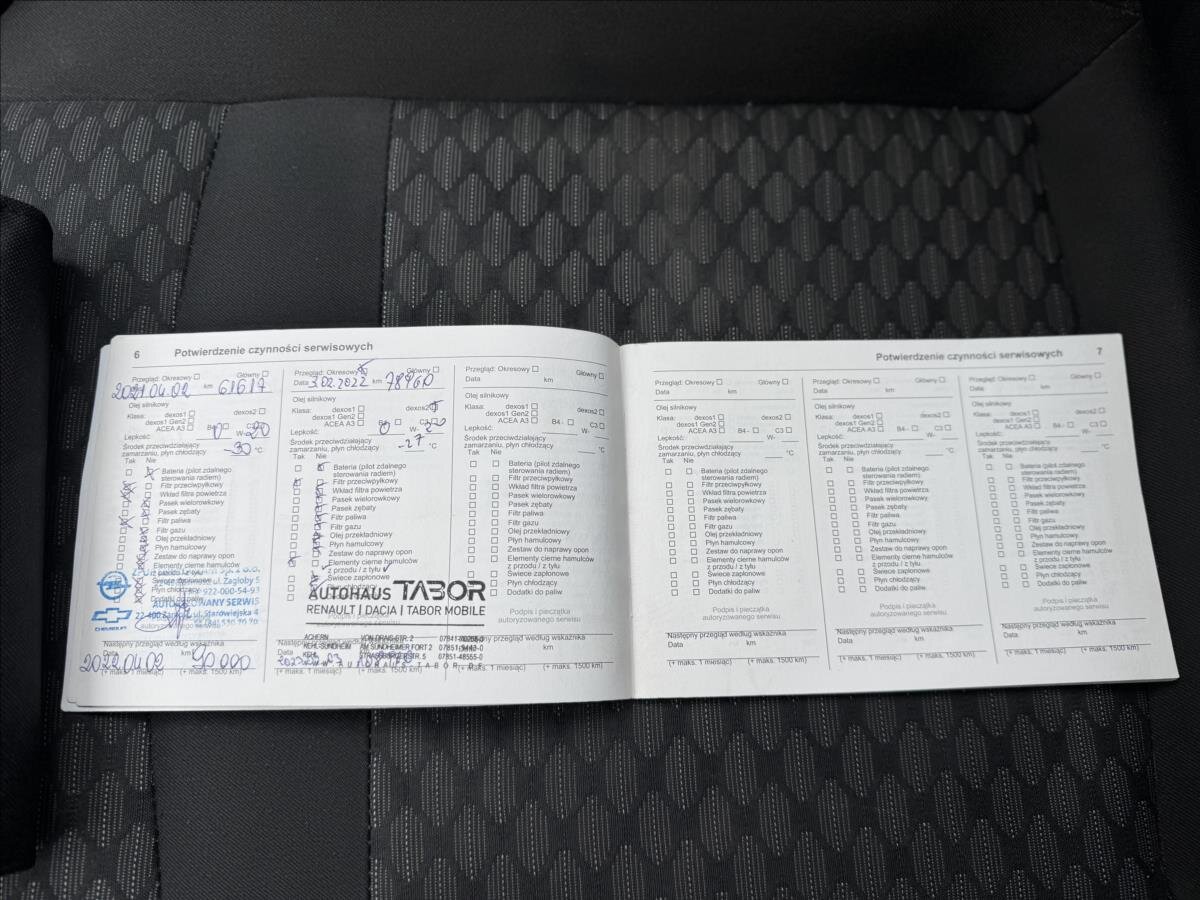 6 Potwierdzenie czynności serwisowych
Przegląd: Okresowy Główny
2021.04.02 km 61617
Olej silnikowy
Klasa: dexos1 dexos2
dexos1 Gen2
ACEA A3 B4 - C3
Lepkość: 0 W- 20
Środek przeciwdziałający
zamarzaniu, płyn chłodzący -30 °C
Tak Nie
Bateria (pilot zdalnego
sterowania radiem)
Filtr przeciwpyłkowy
Wkład filtra powietrza
Pasek wielorowkowy
Pasek zębaty
Filtr paliwa
Filtr gazu
Olej przekładniowy
Płyn hamulcowy
Zestaw do naprawy opon
Elementy cierne hamulców
ul. Zagłoby 5
922-000-54-93
SERWIS
22-400 ul. Starowiejska 4
CHEVROLET
Następny przegląd według wskaźnika
Data km
2022.04.02 90.000
(+ maks. 1 miesiąc) (+ maks. 1500 km)
Przegląd: Okresowy Główny
Data 3.02.2022 km 78960
Olej silnikowy
Klasa: dexos1 dexos2
dexos1 Gen2
ACEA A3 B4 - C3
Lepkość: 0 W- 20
Środek przeciwdziałający
zamarzaniu, płyn chłodzący -27 °C
Tak Nie
Bateria (pilot zdalnego
sterowania radiem)
Filtr przeciwpyłkowy
Wkład filtra powietrza
Pasek wielorowkowy
Pasek zębaty
Filtr paliwa
Filtr gazu
Olej przekładniowy
Płyn hamulcowy
Zestaw do naprawy opon
Elementy cierne hamulców
z przodu / z tyłu
Świece zapłonowe
AUTOHAUS TABOR
RENAULT | DACIA | TABOR MOBILE
ACHERN VON-DRAIS-STR. 2
KEHL-SUNDHEIM AM SUNDHEIMER FORT 2
KEHL STRASSBURGER STR. 5 07851-48555-0
WWW.AUTOHAUS-TABOR.DE
(+ maks. 1 miesiąc) (+ maks. 1500 km)
Przegląd: Okresowy Główny
Data km
Olej silnikowy
Klasa: dexos1 dexos2
dexos1 Gen2
ACEA A3 B4 - C3
Lepkość: W-
Środek przeciwdziałający
zamarzaniu, płyn chłodzący °C
Tak Nie
Bateria (pilot zdalnego
sterowania radiem)
Filtr przeciwpyłkowy
Wkład filtra powietrza
Pasek wielorowkowy
Pasek zębaty
Filtr paliwa
Filtr gazu
Olej przekładniowy
Płyn hamulcowy
Zestaw do naprawy opon
Elementy cierne hamulców
z przodu / z tyłu
Świece zapłonowe
Płyn chłodzący
Dodatki do paliw
Podpis i pieczątka
autoryzowanego serwisu
przegląd według wskaźnika
km
(+ maks. 1 miesiąc) (+ maks. 1500 km)
Potwierdzenie czynności serwisowych 7
Przegląd: Okresowy Główny
Data km
Olej silnikowy
Klasa: dexos1 dexos2
dexos1 Gen2
ACEA A3 B4 - C3
Lepkość: W-
Środek przeciwdziałający
zamarzaniu, płyn chłodzący °C
Tak Nie
Bateria (pilot zdalnego
sterowania radiem)
Filtr przeciwpyłkowy
Wkład filtra powietrza
Pasek wielorowkowy
Pasek zębaty
Filtr paliwa
Filtr gazu
Olej przekładniowy
Płyn hamulcowy
Zestaw do naprawy opon
Elementy cierne hamulców
z przodu / z tyłu
Świece zapłonowe
Płyn chłodzący
Dodatki do paliw
Podpis i pieczątka
autoryzowanego serwisu
Następny przegląd według wskaźnika
Data km
(+ maks. 1 miesiąc) (+ maks. 1500 km)
Przegląd: Okresowy Główny
Data km
Olej silnikowy
Klasa: dexos1 dexos2
dexos1 Gen2
ACEA A3 B4 - C3
Lepkość: W-
Środek przeciwdziałający
zamarzaniu, płyn chłodzący °C
Tak Nie
Bateria (pilot zdalnego
sterowania radiem)
Filtr przeciwpyłkowy
Wkład filtra powietrza
Pasek wielorowkowy
Pasek zębaty
Filtr paliwa
Filtr gazu
Olej przekładniowy
Płyn hamulcowy
Zestaw do naprawy opon
Elementy cierne hamulców
z przodu / z tyłu
Świece zapłonowe
Płyn chłodzący
Dodatki do paliw
Podpis i pieczątka
autoryzowanego serwisu
Następny przegląd według wskaźnika
Data km
(+ maks. 1 miesiąc) (+ maks. 1500 km)
Przegląd: Okresowy Główny
Data km
Olej silnikowy
Klasa: dexos1 dexos2
dexos1 Gen2
ACEA A3 B4 - C3
Lepkość: W-
Środek przeciwdziałający
zamarzaniu, płyn chłodzący °C
Tak Nie
Bateria (pilot zdalnego
sterowania radiem)
Filtr przeciwpyłkowy
Wkład filtra powietrza
Pasek wielorowkowy
Pasek zębaty
Filtr paliwa
Filtr gazu
Olej przekładniowy
Płyn hamulcowy
Zestaw do naprawy opon
Elementy cierne hamulców
z przodu / z tyłu
Świece zapłonowe
Płyn chłodzący
Dodatki do paliw
Podpis i pieczątka
autoryzowanego serwisu
Następny przegląd według wskaźnika
Data km
(+ maks. 1 miesiąc) (+ maks. 1500 km)